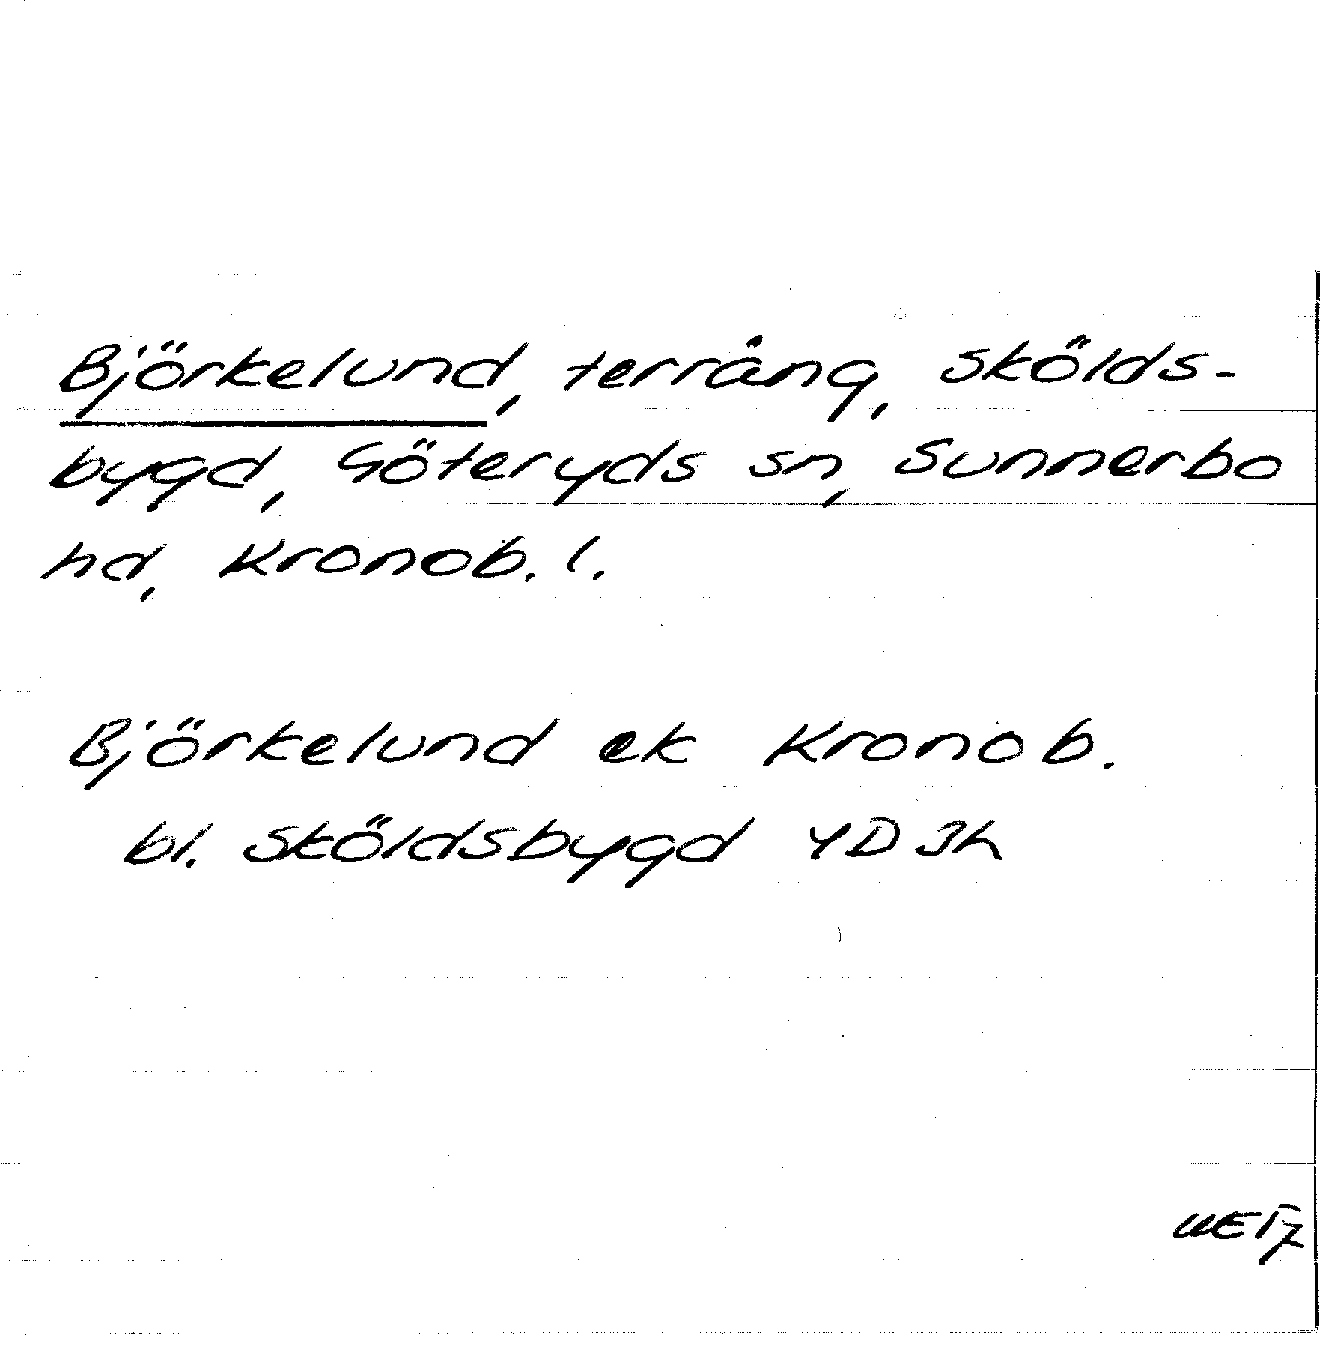 Björkelund, terräng, Skölds-
bygd, Göteryds sn, Sunnerbo
hd, Kronob. l.
Björkelund ek Kronob.
bl. Sköldsbygd 4D3h